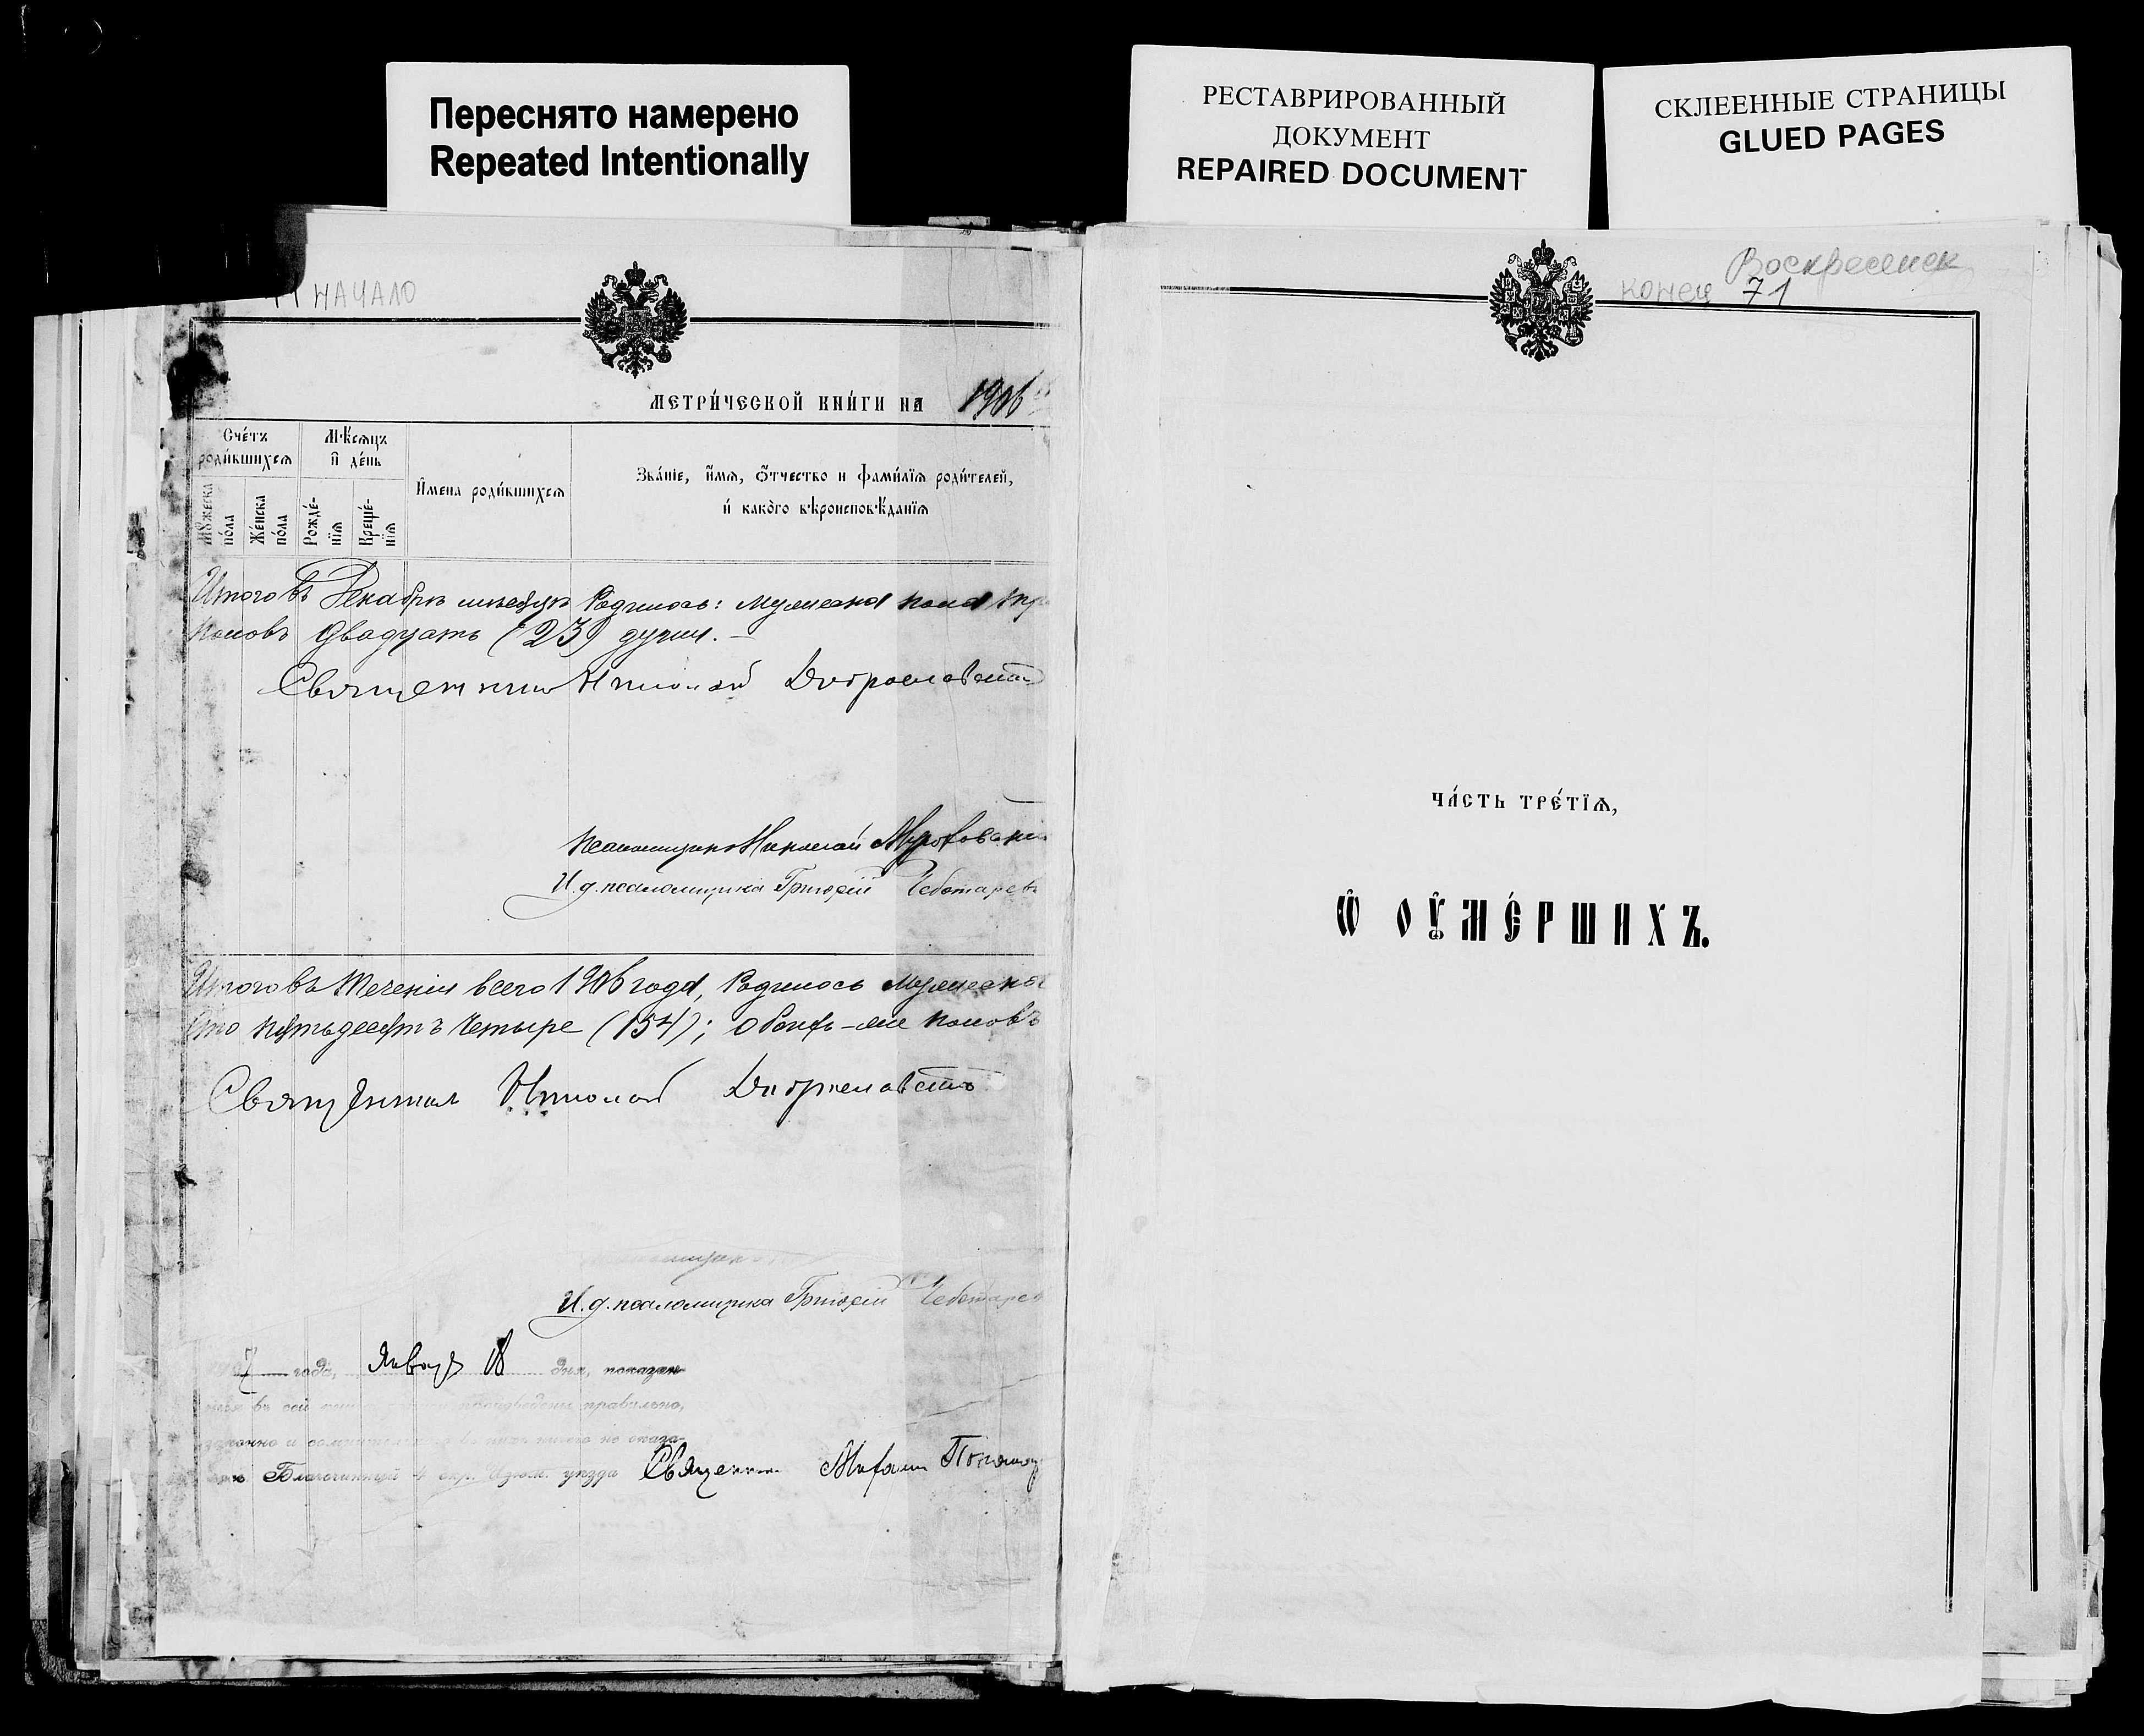 Переснято намерено
Repeated Intentionally
РЕСТАВРИРОВАННЫЙ
ДОКУМЕНТ
REPAIRED DOCUMENT
СКЛЕЕННЫЕ СТРАНИЦЫ
GLUED PAGES
НАЧАЛО
МЕТРИ́ЧЕСКОЙ КНИ́ГИ НА 1906
Сче́тъ роди́вшихсѧ
Мѣ́сѧцъ и҆ де́нь
И҆мена роди́вшихсѧ
Зва́нїе, и҆́мѧ, ѻ҆́тчество и фами́лїѧ роди́телей,
и҆ како́го вѣроисповѣ́данїѧ
Мꙋжеска по́ла
Же́нска по́ла
Рожде́нїѧ
Креще́нїѧ
Итого въ Декабрѣ месяцѣ Родилось: мужеска пола
половъ двадцать (23) души.
Священник Николай Доброславскій
Псаломщикъ Николай
И. д. псаломщика Григорій Чеботаревъ
Итого въ теченіи всего 1906 года, Родилось мужеска
сто пятьдесятъ четыре (154); обоихъ-же половъ
Священник Николай Доброславскій
И. д. псаломщика Григорій Чеботарев
7 года, Январ 18 дня, показан
въ сей правильно,
и не оказа-
Благочинный 4 окр. Изюм. уѣзда Священник
Воскресенск
конец 71
ЧА́СТЬ ТРЕ́ТЇѦ,
Ѽ ОУ҆МЕ́РШИХЪ.